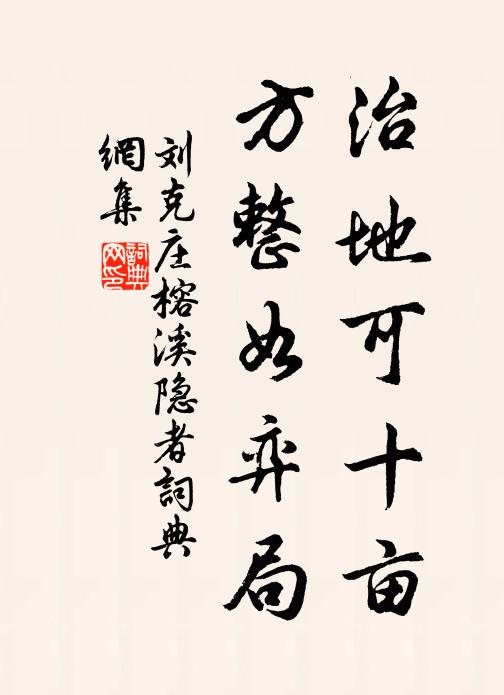 治地可十亩
方整如弈局
刘克庄榕溪隐者詞典
網集
詞典网印